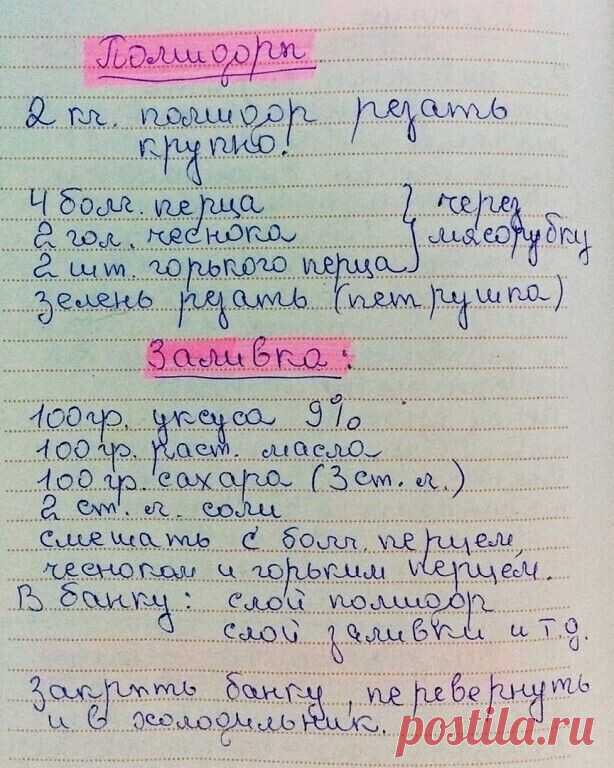 Помидоры
2 кг. помидор резать
крупно!
4 болг. перца } через
2 гол. чеснока } мясорубку
2 шт. горького перца
зелень резать (петрушка)
Заливка:
100 гр. уксуса 9%
100 гр. раст. масла
100 гр. сахара (3 ст. л.)
2 ст. л. соли
смешать с болг. перцем,
чесноком и горьким перцем.
В банку: слой помидор
слой заливки и т.д.
Закрыть банку, перевернуть
и в холодильник.
postila.ru